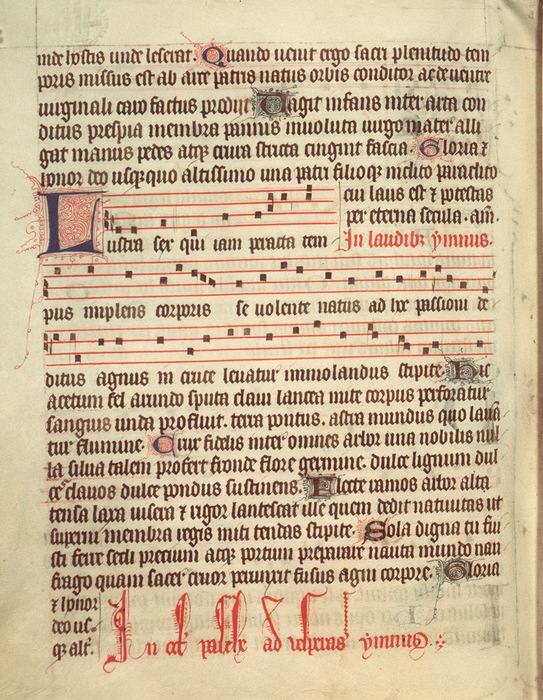 inde hostis unde leserat. Quando uenit ergo sacri plenitudo tem
poris missus est ab arce patris natus orbis conditor ac de uentre
uirginali caro factus prodijt Uagit infans inter arta con
ditus presepia membra pannis inuoluta uirgo mater alli
gat manus pedes atqꝫ crura stricta cingunt fascia. Gloria ⁊
honor deo usqꝫquo altissimo una patri filioqꝫ inclito paraclito
cui laus est ⁊ potestas
per eterna secula. am̅.
In laudibꝫ ymnus.
Lustra sex qui iam peracta tem
pus implens corporis se uolente natus ad hoc passioni de
ditus agnus in cruce leuatur immolandus stipite. Hic
acetum fel arundo sputa claui lancea mite corpus perforatur
sanguis unda profluit. terra pontus. astra mundus quo laua
tur flumine. Crux fidelis inter omnes arbor una nobilis nul
la silua talem profert fronde flore germine. dulce lignum dul
ces clauos dulce pondus sustinens. Flecte ramos arbor alta
tensa laxa uisera ⁊ rigor lantescat ille quem dedit natiuitas ut
superni membra regis miti tendas stipite. Sola digna tu fui
sti ferre secli precium atqꝫ portum preparare nauta mundo nau
frago quam sacer cruor perunxit fusus agni corpore. Gloria
⁊ honor
deo us
qꝫ alt.
In oct pasche ad vesperas ymnus